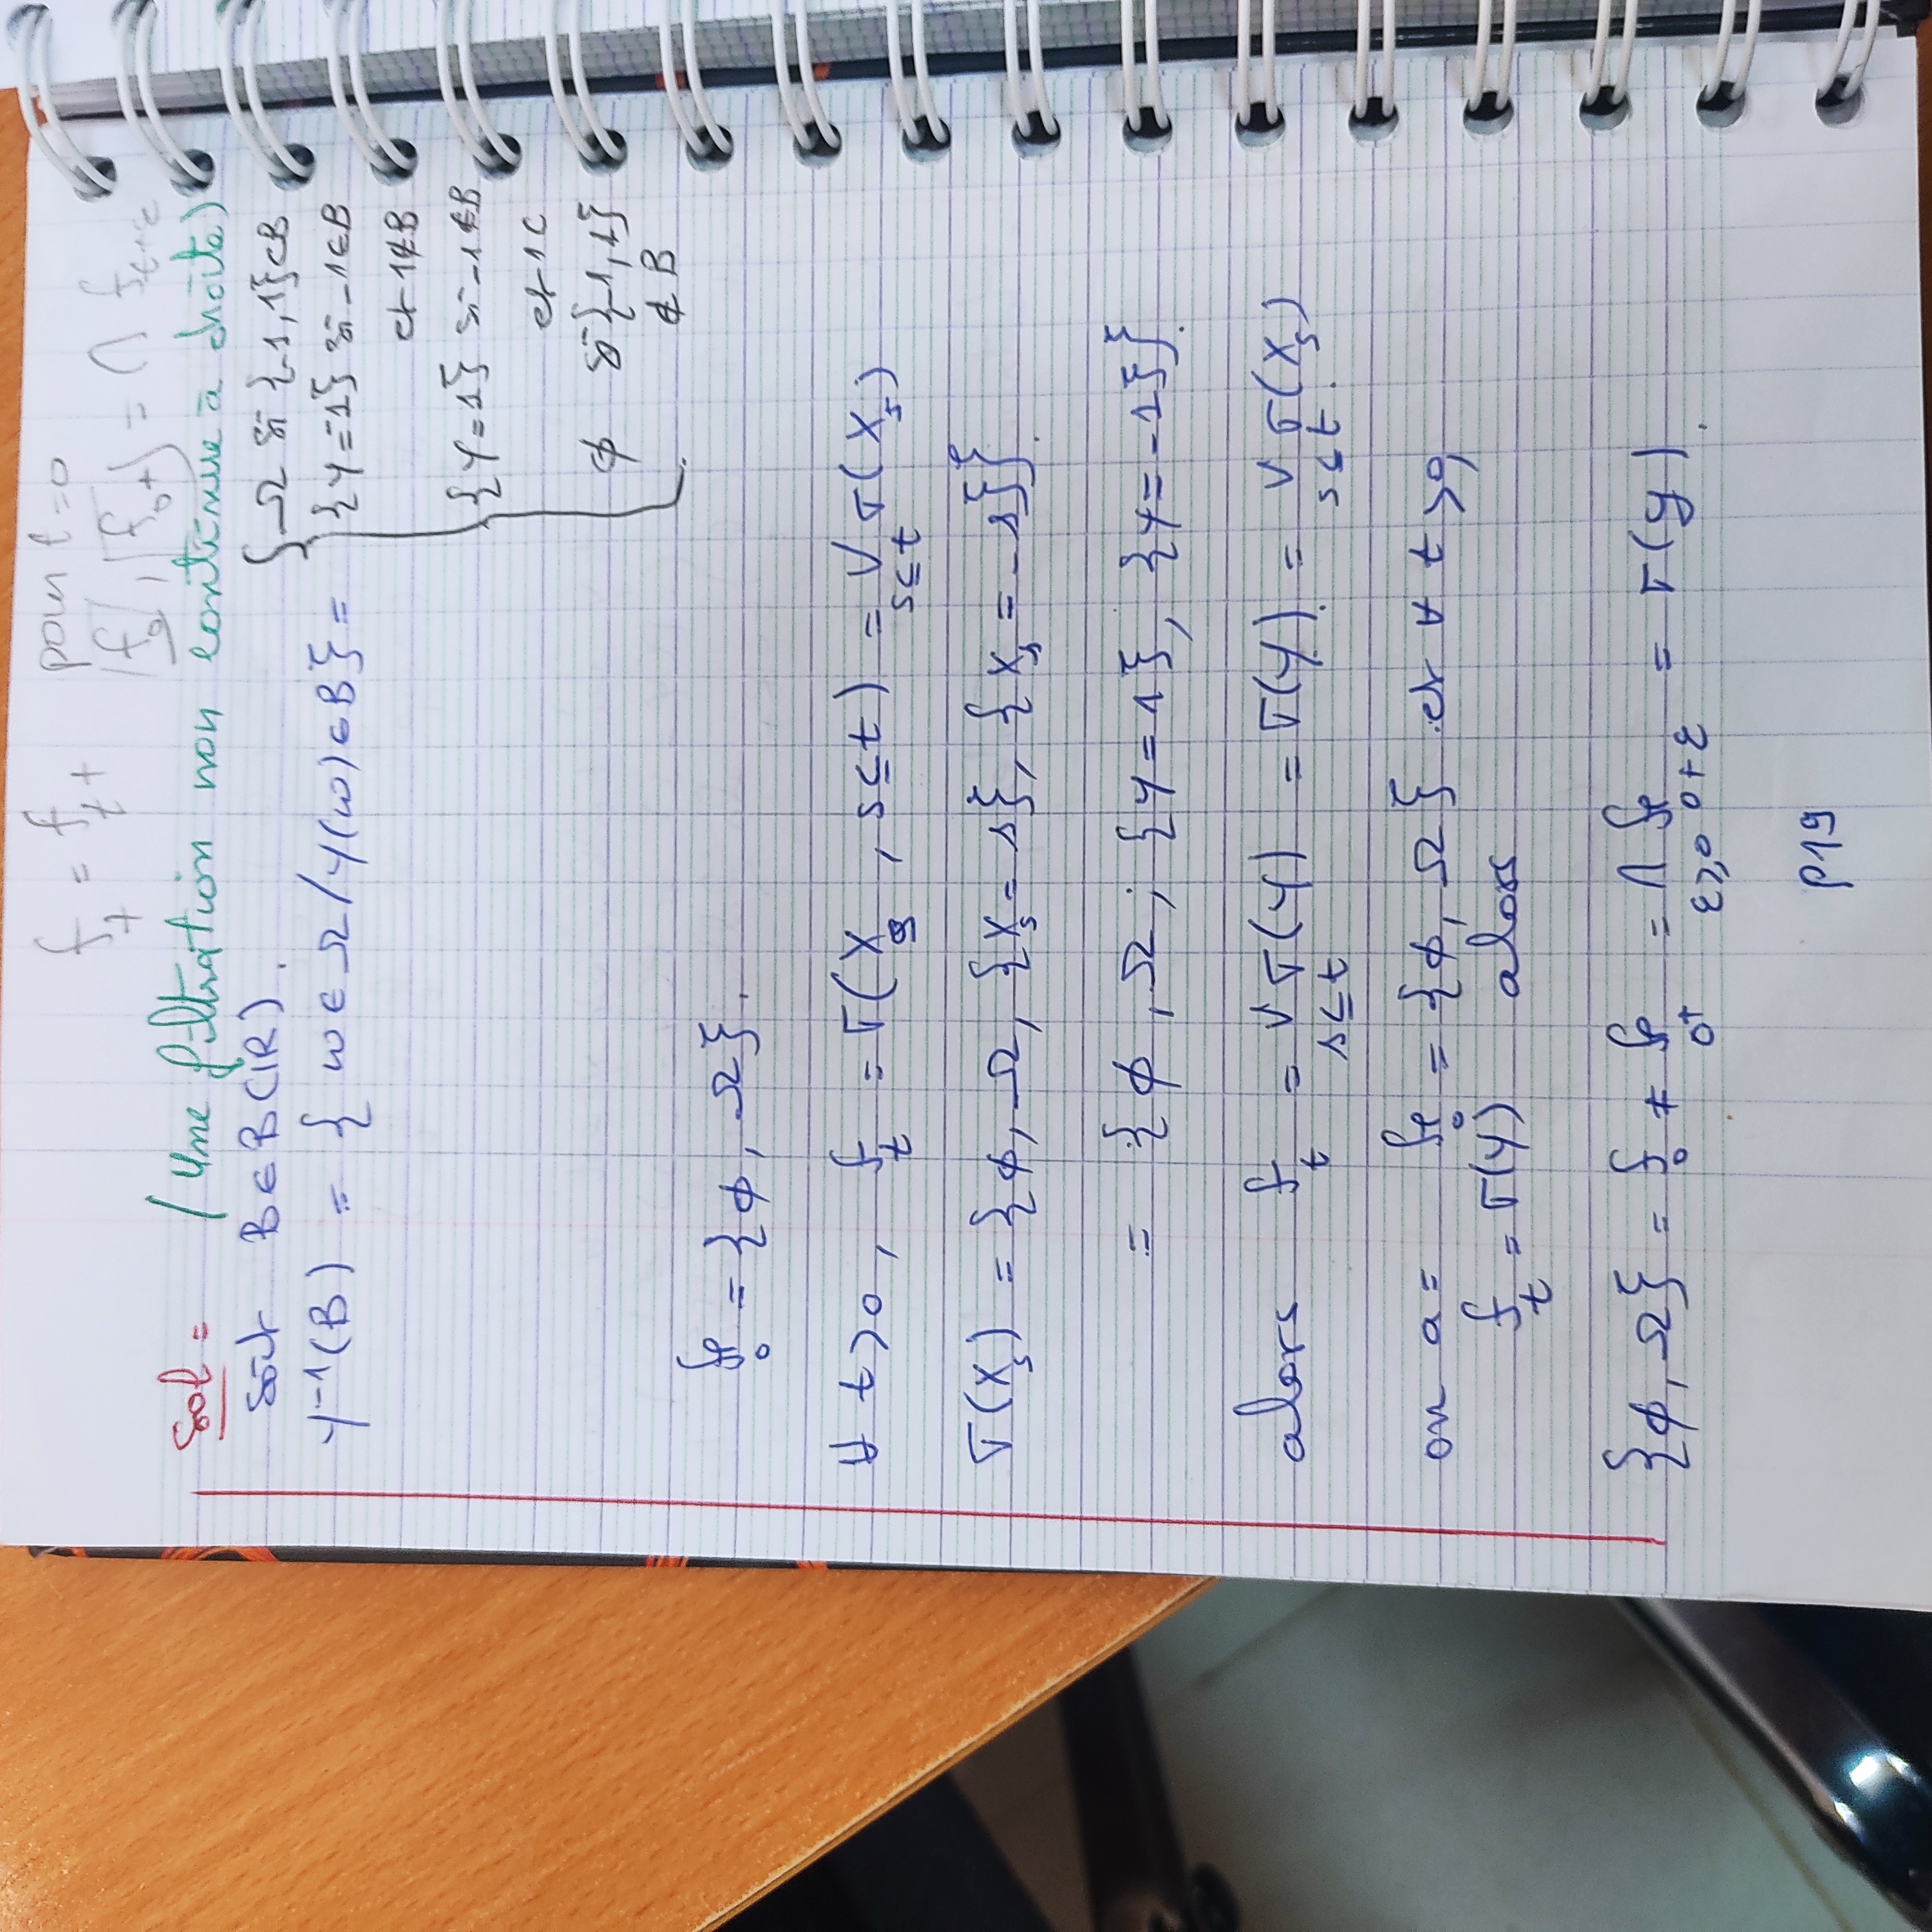 f_t = f_{t+} pour t=0
f_0, f_{0+} = ∩ f_{t+ε}
Sol = (Une filtration non continue à droite)
Soit B ∈ B(IR).
Y⁻¹(B) = { ω ∈ Ω / Y(ω) ∈ B} = { Ω si {-1,1}⊂B
{Y=-1} si -1∈B
et 1∉B
{Y=1} si -1∉B
et 1 ⊂
ϕ si {-1,1}
∉ B
f_0 = {ϕ, Ω}.
∀ t>0, f_t = σ(X_s, s≤t) = ∨_{s≤t} σ(X_s)
σ(X_s) = {ϕ, Ω, {X_s = s}, {X_s = -s}}.
= {ϕ, Ω; {Y=1}, {Y=-1}}.
alors f_t = ∨_{s≤t} σ(Y) = σ(Y) = ∨_{s≤t} σ(X_s)
on a = f_0 = {ϕ, Ω} et ∀ t>0,
f_t = σ(Y) alors
{ϕ, Ω} = f_0 ≠ f_{0+} = ∩_{ε≥0} f_{0+ε} = σ(Y).
P19